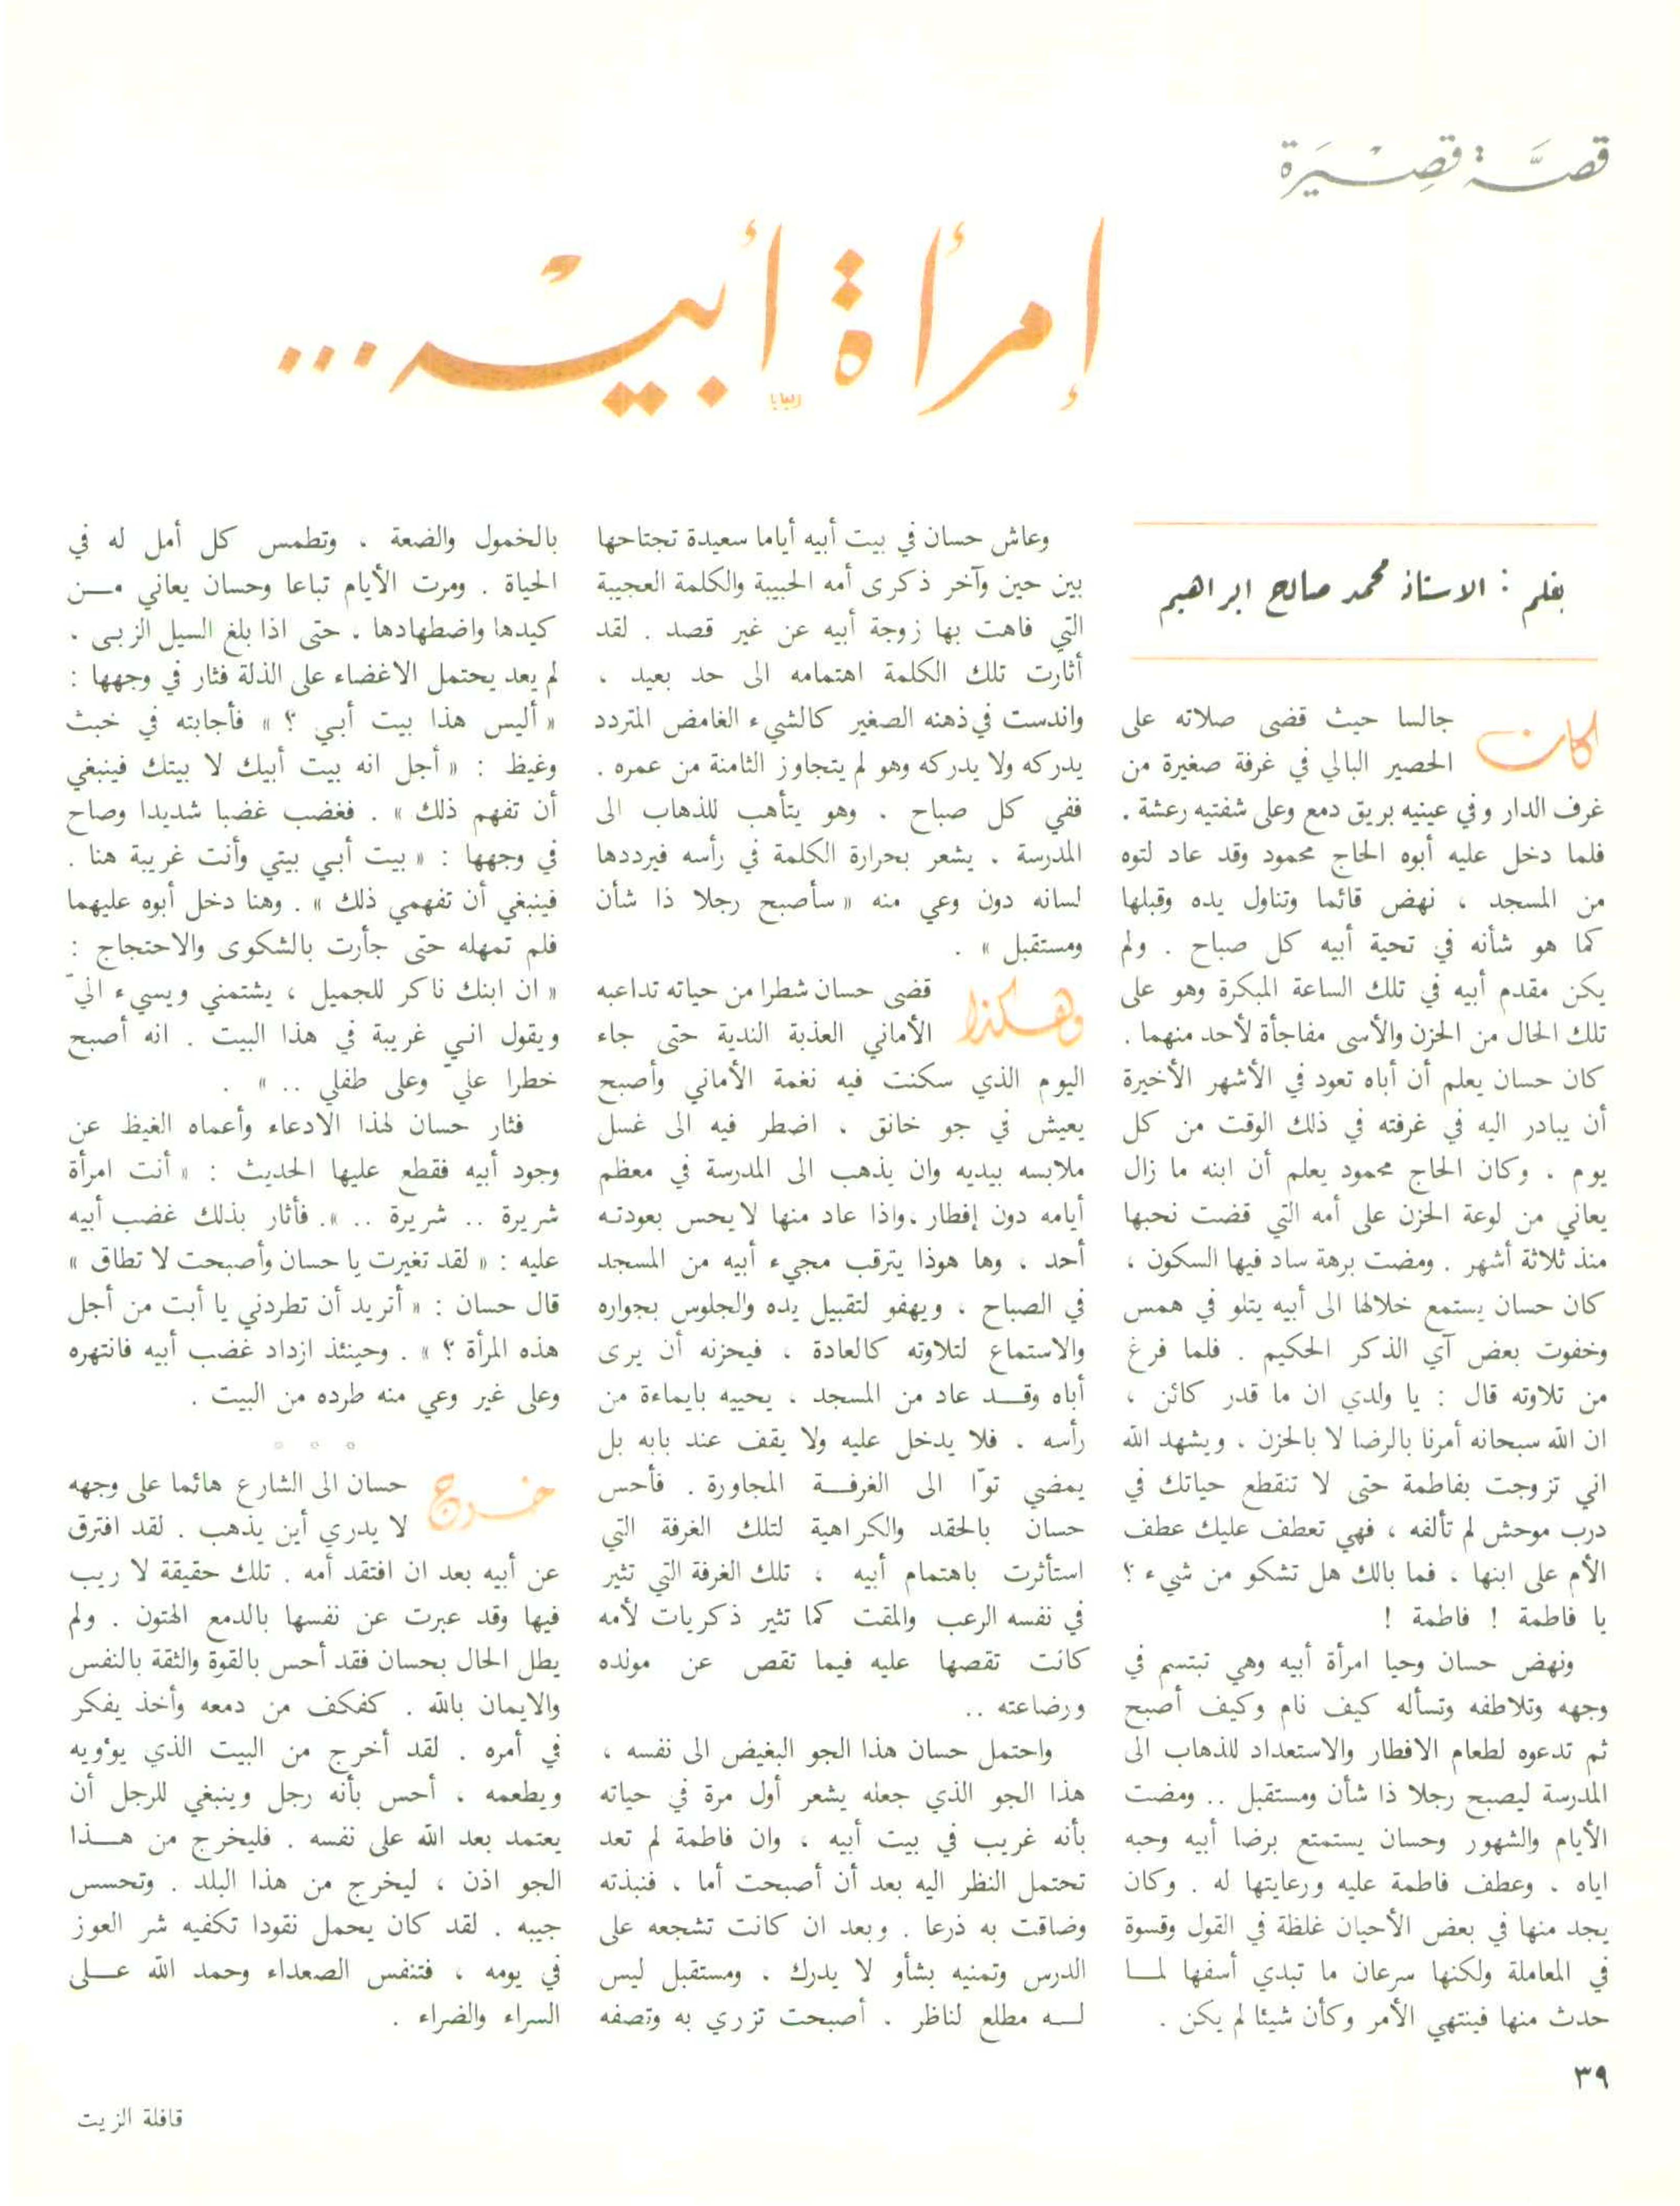 قصة قصيرة
إمرأة أبيه...
بقلم : الاستاذ محمد صالح ابراهيم
كان جالسا حيث قضى صلاته على
الحصير البالي في غرفة صغيرة من
غرف الدار وفي عينيه بريق دمع وعلى شفتيه رعشة .
فلما دخل عليه أبوه الحاج محمود وقد عاد لتوه
من المسجد ، نهض قائما وتناول يده وقبلها
كما هو شأنه في تحية أبيه كل صباح . ولم
يكن مقدم أبيه في تلك الساعة المبكرة وهو على
تلك الحال من الحزن والأسى مفاجأة لأحد منهما .
كان حسان يعلم أن أباه تعود في الأشهر الأخيرة
أن يبادر اليه في غرفته في ذلك الوقت من كل
يوم . وكان الحاج محمود يعلم أن ابنه ما زال
يعاني من لوعة الحزن على أمه التي قضت نحبها
منذ ثلاثة أشهر . ومضت برهة ساد فيها السكون ،
كان حسان يستمع خلالها الى أبيه يتلو في همس
وخفوت بعض آي الذكر الحكيم . فلما فرغ
من تلاوته قال : يا ولدي ان ما قدر كائن ،
ان الله سبحانه أمرنا بالرضا لا بالحزن ، ويشهد الله
اني تزوجت بفاطمة حتى لا تنقطع حياتك في
درب موحش لم تألفه ، فهي تعطف عليك عطف
الأم على ابنها ، فما بالك هل تشكو من شيء ؟
يا فاطمة ! فاطمة !
ونهض حسان وحيا امرأة أبيه وهي تبتسم في
وجهه وتلاطفه وتسأله كيف نام وكيف أصبح
ثم تدعوه لطعام الافطار والاستعداد للذهاب الى
المدرسة ليصبح رجلا ذا شأن ومستقبل .. ومضت
الأيام والشهور وحسان يستمتع برضا أبيه وحبه
اياه ، وعطف فاطمة عليه ورعايتها له . وكان
يجد منها في بعض الأحيان غلظة في القول وقسوة
في المعاملة ولكنها سرعان ما تبدي أسفها لما
حدث منها فينتهي الأمر وكأن شيئا لم يكن .
وعاش حسان في بيت أبيه أياما سعيدة تجتاحها
بين حين وآخر ذكرى أمه الحبيبة والكلمة العجيبة
التي فاهت بها زوجة أبيه عن غير قصد . لقد
أثارت تلك الكلمة اهتمامه الى حد بعيد ،
واندست في ذهنه الصغير كالشيء الغامض المتردد
يدركه ولا يدركه وهو لم يتجاوز الثامنة من عمره .
ففي كل صباح ، وهو يتأهب للذهاب الى
المدرسة ، يشعر بحرارة الكلمة في رأسه فيرددها
لسانه دون وعي منه « سأصبح رجلا ذا شأن
ومستقبل » .
وهكذا قضى حسان شطرا من حياته تداعبه
الأماني العذبة الندية حتى جاء
اليوم الذي سكنت فيه نغمة الأماني وأصبح
يعيش في جو خانق ، اضطر فيه الى غسل
ملابسه بيديه وان يذهب الى المدرسة في معظم
أيامه دون إفطار ، واذا عاد منها لا يحس بعودته
أحد ، وها هوذا يترقب مجيء أبيه من المسجد
في الصباح ، ويهفو لتقبيل يده والجلوس بجواره
والاستماع لتلاوته كالعادة ، فيحزنه أن يرى
أباه وقد عاد من المسجد ، يحييه بايماءة من
رأسه ، فلا يدخل عليه ولا يقف عند بابه بل
يمضي توّا الى الغرفة المجاورة . فأحس
حسان بالحقد والكراهية لتلك الغرفة التي
استأثرت باهتمام أبيه ، تلك الغرفة التي تثير
في نفسه الرعب والمقت كما تثير ذكريات لأمه
كانت تقصها عليه فيما تقص عن مولده
ورضاعته ..
واحتمل حسان هذا الجو البغيض الى نفسه ،
هذا الجو الذي جعله يشعر أول مرة في حياته
بأنه غريب في بيت أبيه ، وان فاطمة لم تعد
تحتمل النظر اليه بعد أن أصبحت أما ، فنبذته
وضاقت به ذرعا . وبعد ان كانت تشجعه على
الدرس وتمنيه بشأو لا يدرك ، ومستقبل ليس
له مطلع لناظر . أصبحت تزري به وتصفه
بالخمول والضعة ، وتطمس كل أمل له في
الحياة . ومرت الأيام تباعا وحسان يعاني من
كيدها واضطهادها ، حتى اذا بلغ السيل الزبى ،
لم يعد يحتمل الاغضاء على الذلة فثار في وجهها :
« أليس هذا بيت أبي ؟ » فأجابته في خبث
وغيظ : « أجل انه بيت أبيك لا بيتك فينبغي
أن تفهم ذلك » . فغضب غضبا شديدا وصاح
في وجهها : « بيت أبي بيتي وأنت غريبة هنا .
فينبغي أن تفهمي ذلك » . وهنا دخل أبوه عليهما
فلم تمهله حتى جأرت بالشكوى والاحتجاج :
« ان ابنك ناكر للجميل ، يشتمني ويسيء اليّ
ويقول اني غريبة في هذا البيت . انه أصبح
خطرا عليّ وعلى طفلي .. » .
فثار حسان لهذا الادعاء وأعماه الغيظ عن
وجود أبيه فقطع عليها الحديث : « أنت امرأة
شريرة .. شريرة .. ». فأثار بذلك غضب أبيه
عليه : « لقد تغيرت يا حسان وأصبحت لا تطاق »
قال حسان : « أتريد أن تطردني يا أبت من أجل
هذه المرأة ؟ » . وحينئذ ازداد غضب أبيه فانتهره
وعلى غير وعي منه طرده من البيت .
° ° °
خرج حسان الى الشارع هائما على وجهه
لا يدري أين يذهب . لقد افترق
عن أبيه بعد ان افتقد أمه . تلك حقيقة لا ريب
فيها وقد عبرت عن نفسها بالدمع الهتون . ولم
يطل الحال بحسان فقد أحس بالقوة والثقة بالنفس
والايمان بالله . كفكف من دمعه وأخذ يفكر
في أمره . لقد أخرج من البيت الذي يوؤويه
ويطعمه ، أحس بأنه رجل وينبغي للرجل أن
يعتمد بعد الله على نفسه . فليخرج من هذا
الجو اذن ، ليخرج من هذا البلد . وتحسس
جيبه . لقد كان يحمل نقودا تكفيه شر العوز
في يومه ، فتنفس الصعداء وحمد الله على
السراء والضراء .
٣٩
قافلة الزيت